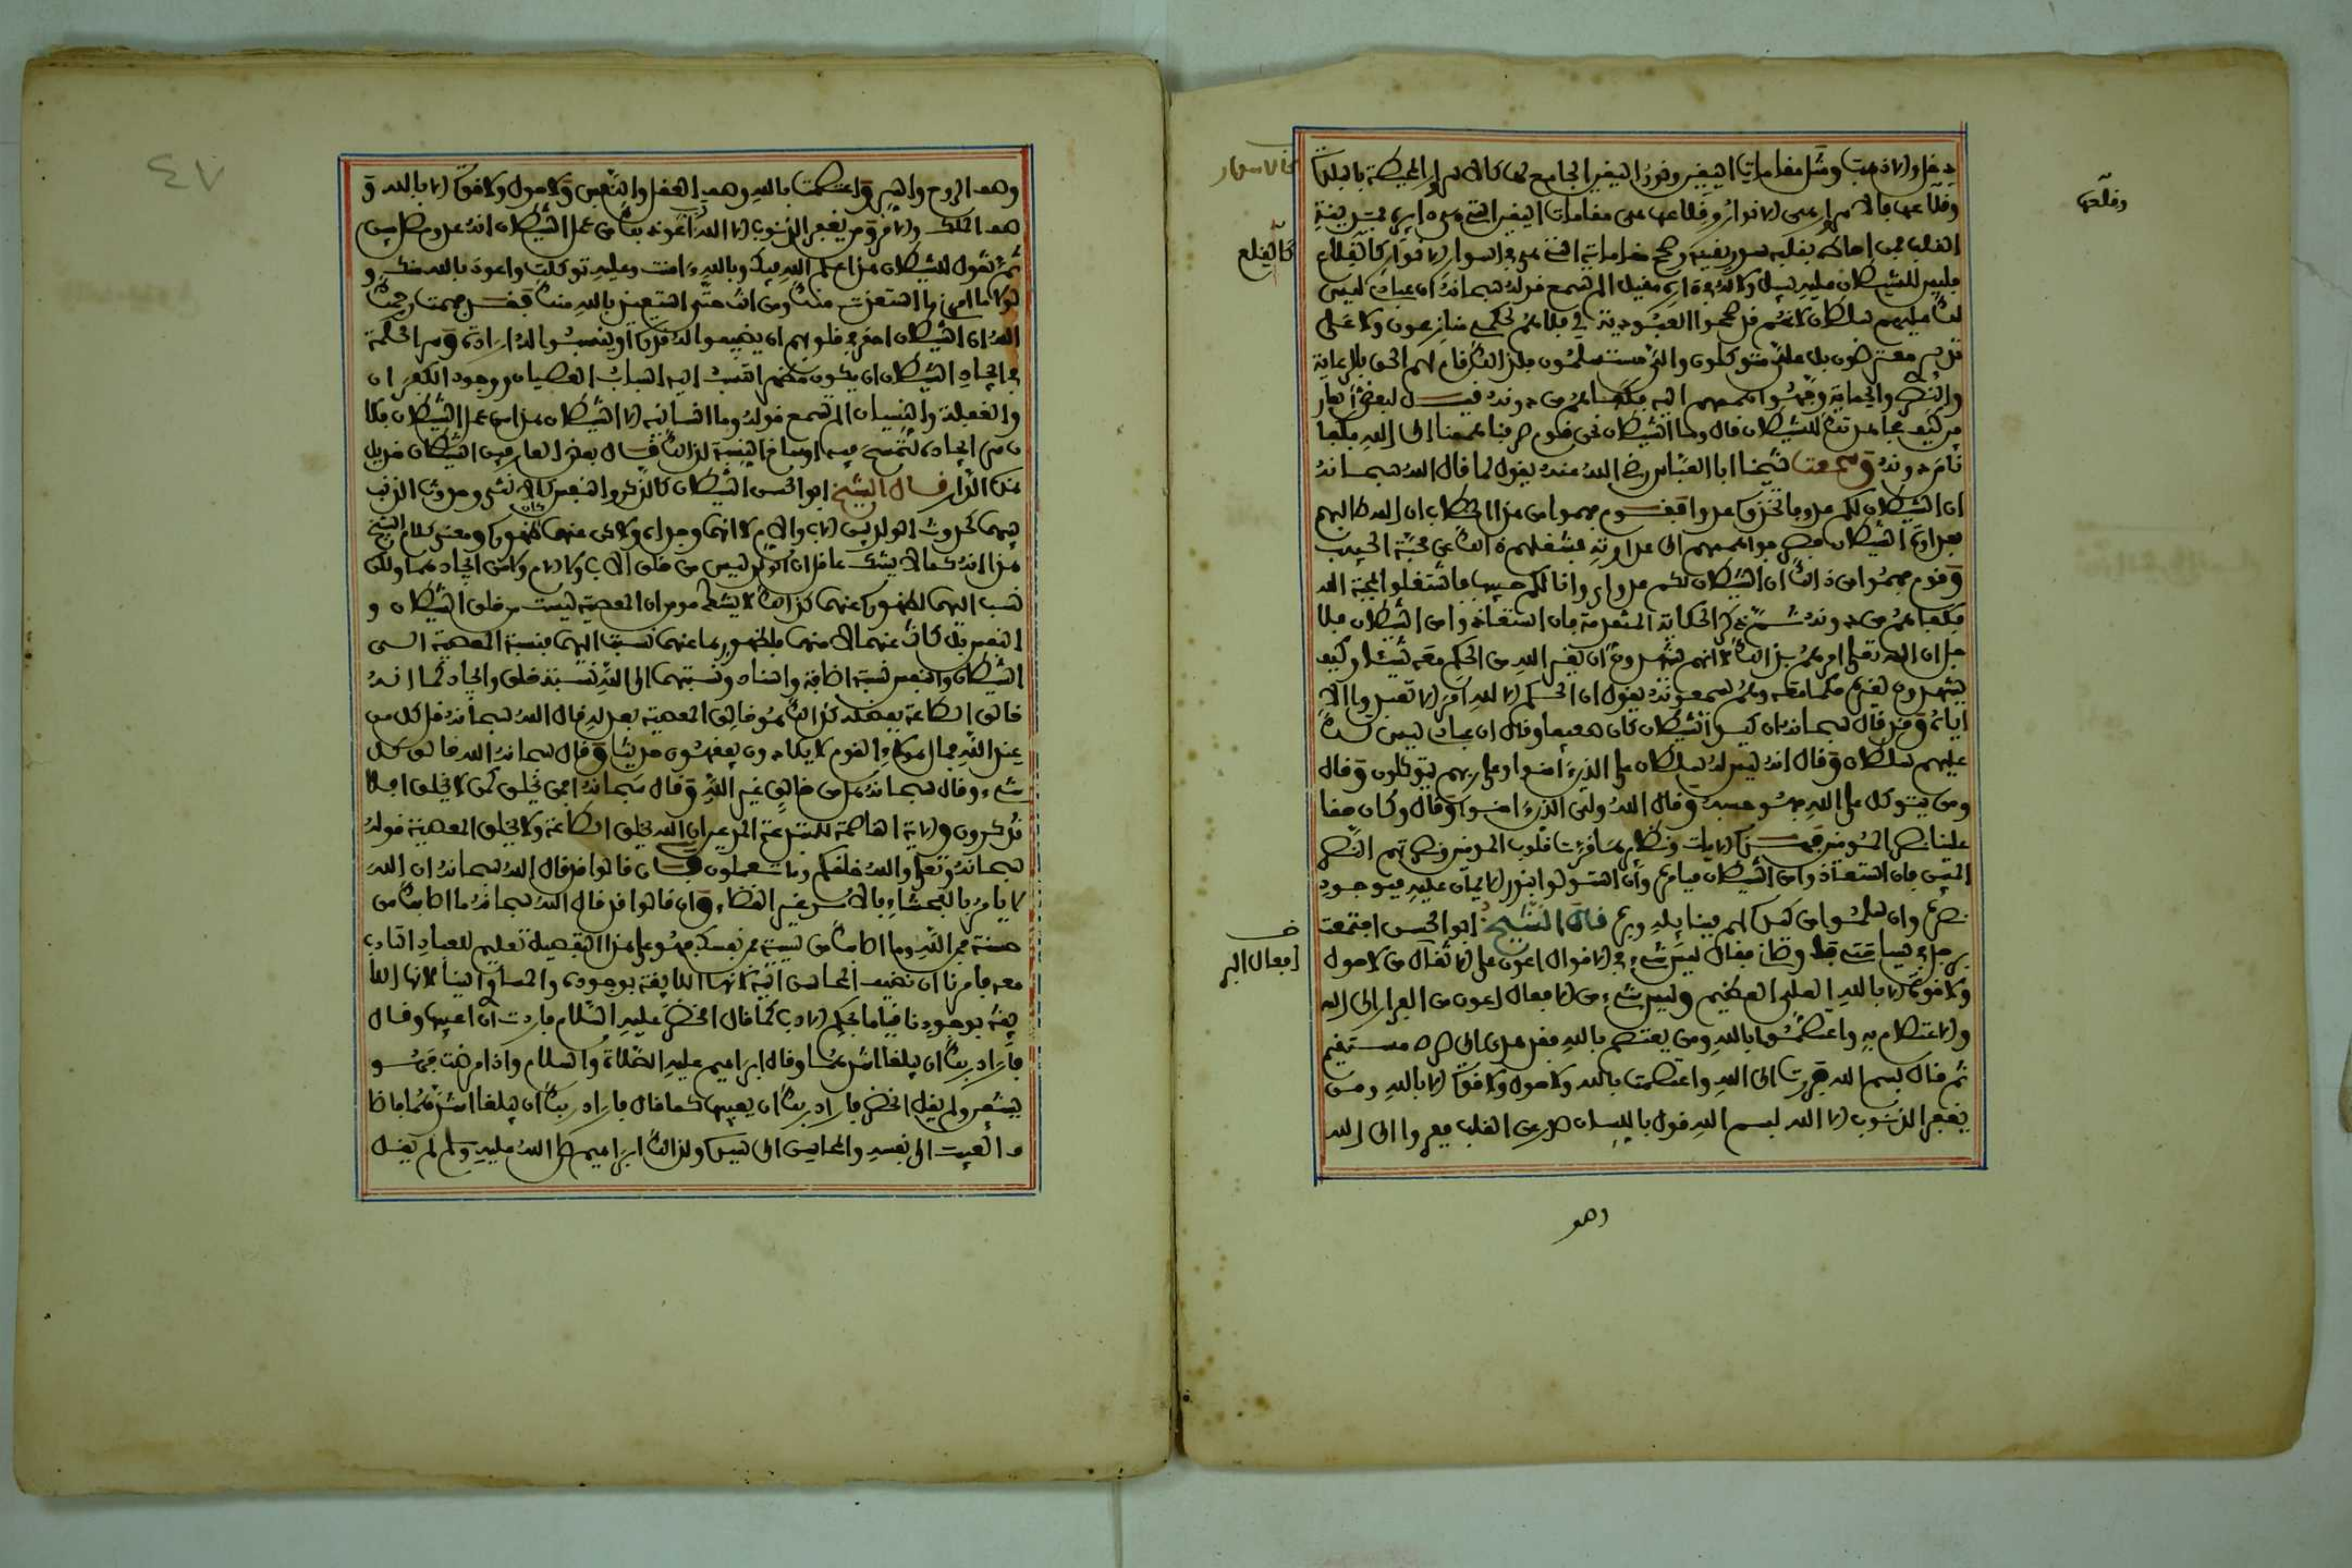 دخل والا ذهبت ومثل مقامات اليقين ونور اليقين الجامع لها كالاسوار المحيطة بالبلدة
وقلاعها فالاسوار هي الانوار وقلاعها هي مقامات اليقين التي هي دايرة بمدينة
القلب فمن احاط بقلبه سور يقينه وصحح مقاماته التي هي اسوار الانوار كالقلاع
فليس للشيطان عليه سبيل ولا له في داره مقيل الم تسمع قوله سبحانه ان عبادي ليس
لك عليهم سلطان لانهم قد صححوا العبودية لي فلا هم لحكمي منازعون ولا على
تدبيري معترضون بل علي متوكلون والي مستسلمون فلذلك قام لهم الحق بالرعاية
والنصر والحماية ووجهوا هممهم اليه فكفاهم من دونه قيل لبعض العار
فين كيف مجاهدتك للشيطان قال وما الشيطان نحن قوم صرفنا هممنا الى الله فكفا
نا من دونه وسمعت شيخنا ابا العباس رضي الله عنه يقول لما قال الله سبحانه
ان الشيطان لكم عدو فاتخذوه عدوا فقوم فهموا من هذا الخطاب ان الله طالبهم
بعداوة الشيطان فصرفوا هممهم الى عداوته فشغلهم ذلك عن محبة الحبيب
وقوم فهموا من ذلك ان الشيطان لكم عدو اي وانا لكم حبيب فاشتغلوا بمحبة الله
فكفاهم من دونه ثم ذكر الحكاية المتقدمة فان استعاذوا من الشيطان فلا
جل ان الله تعلى امرهم بذلك لا انهم يشهدون ان لغير الله من الحكم معه شيئا وكيف
يشهدون لغيره حكما معه وهم يسمعونه يقول ان الحكم الا لله امر الا تعبدوا الا
اياه وقد قال سبحانه ان كيد الشيطان كان ضعيفا وقال ان عبادي ليس لك
عليهم سلطان وقال انه ليس له سلطان على الذين ءامنوا وعلى ربهم يتوكلون وقال
ومن يتوكل على الله فهو حسبه وقال الله ولي الذين ءامنوا وقال وكان حقا
علينا نصر المومنين فهذه الايات ونظايرها قوت قلوب المومنين ونصرتهم النصر
المبين فان استعاذوا من الشيطان فبامره وان استولوا بنور الايمان عليه فبوجود
نصره وان سلموا من كيده لهم فبتاييده وبره قال الشيخ ابو الحسن اجتمعت
برجل في سياحتي فاوصاني فقال ليس شيء في الاقوال اعون على الافعال من لا حول
ولا قوة الا بالله العلي العظيم وليس شيء من الافعال اعون من الفرار الى الله
والاعتصام به واعتصموا بالله ومن يعتصم بالله فقد هدي الى صراط مستقيم
ثم قال بسم الله فررت الى الله واعتصمت بالله ولا حول ولا قوة الا بالله ومن
يغفر الذنوب الا الله بسم الله قول باللسان صدر عن القلب ففروا الى الله
وهو
وقلاعها
كالاسوار
كالقلاع
افعال البر
٤٧
وهو الروح والسر واعتصمت بالله وهو العقل والنفس ولا حول ولا قوة الا بالله و
هو الملك والامر ومن يغفر الذنوب الا الله اعوذ بك من عمل الشيطان انه عدو مضل مبين
ثم تقول للشيطان هذا علم الله فيك وبالله ءامنت وعليه توكلت واعوذ بالله منك و
لولا ما امرني ما استعذت منك ومن انت حتى استعيذ بالله منك فقد فهمت رحمك
الله ان الشيطان احقر في قلوبهم ان يضيفوا له قدرة او ينسبوا له ارادة وسر الحكمة
في ايجاد الشيطان ان يكون مظهرا تنسب اليه اسباب العصيان ووجود الكفران
والغفلة والنسيان الم تسمع قوله وما انسانيه الا الشيطان هذا من عمل الشيطان فكا
ن سر ايجاده لتمسح فيه اوساخ النسب لذلك قال بعض العارفين الشيطان منديل
هذه الدار قال الشيخ ابو الحسن الشيطان كالذكر والنفس كالانثى وحدوث الذنب
بينهما كحدوث الولد بين الاب والام لا انهما اوجداه ولكن عنهما كان ظهوره ومعنى كلام الشيخ
هذا انه كما لا يشك عاقل ان الولد ليس من خلق الاب والام ولا من ايجادهما ولكن
نسب اليهما لظهوره عنهما كذلك لا يشك مومن ان المعصية ليست من خلق الشيطان و
النفس بل كانت عنهما لا منهما فلظهورها عنهما نسبت اليهما فنسبة المعصية الى
الشيطان والنفس نسبة اضافة واسناد ونسبتهما الى الله نسبة خلق وايجاد كما انه
خالق الطاعة بفضله كذلك هو خالق المعصية بعدله قال الله سبحانه قل كل من
عند الله فمال هولاء القوم لا يكادون يفقهون حديثا وقال سبحانه الله خالق كل
شيء وقال سبحانه هل من خالق غير الله وقال سبحانه افمن يخلق كمن لا يخلق افلا
تذكرون والاية القاصمة للمبتدعة المدعين ان الله يخلق الطاعة ولا يخلق المعصية قوله
سبحانه وتعلى والله خلقكم وما تعملون فان قالوا قد قال الله سبحانه ان الله
لا يامر بالفحشاء فالامر غير القضاء وان قالوا قد قال الله سبحانه ما اصابك من
حسنة فمن الله وما اصابك من سيئة فمن نفسك فهو على هذا التفصيل تعليم للعباد التادب
معه فامرنا ان نضيف المحاسن اليه لانها اللايقة بوجوده والمساوي الينا لانها اللا
يقة بوجودنا قياما بحكم الادب كما قال الخضر عليه السلام فاردت ان اعيبها وقال
فاراد ربك ان يبلغا اشدهما وقال ابراهيم عليه الصلاة والسلام واذا مرضت فهو
يشفين ولم يقل الخضر فاراد ربك ان يعيبها كما قال فاراد ربك ان يبلغا اشدهما فاضا
ف العيب الى نفسه والمحاسن الى سيده ولذلك ابراهيم صلى الله عليه وسلم لم يقل